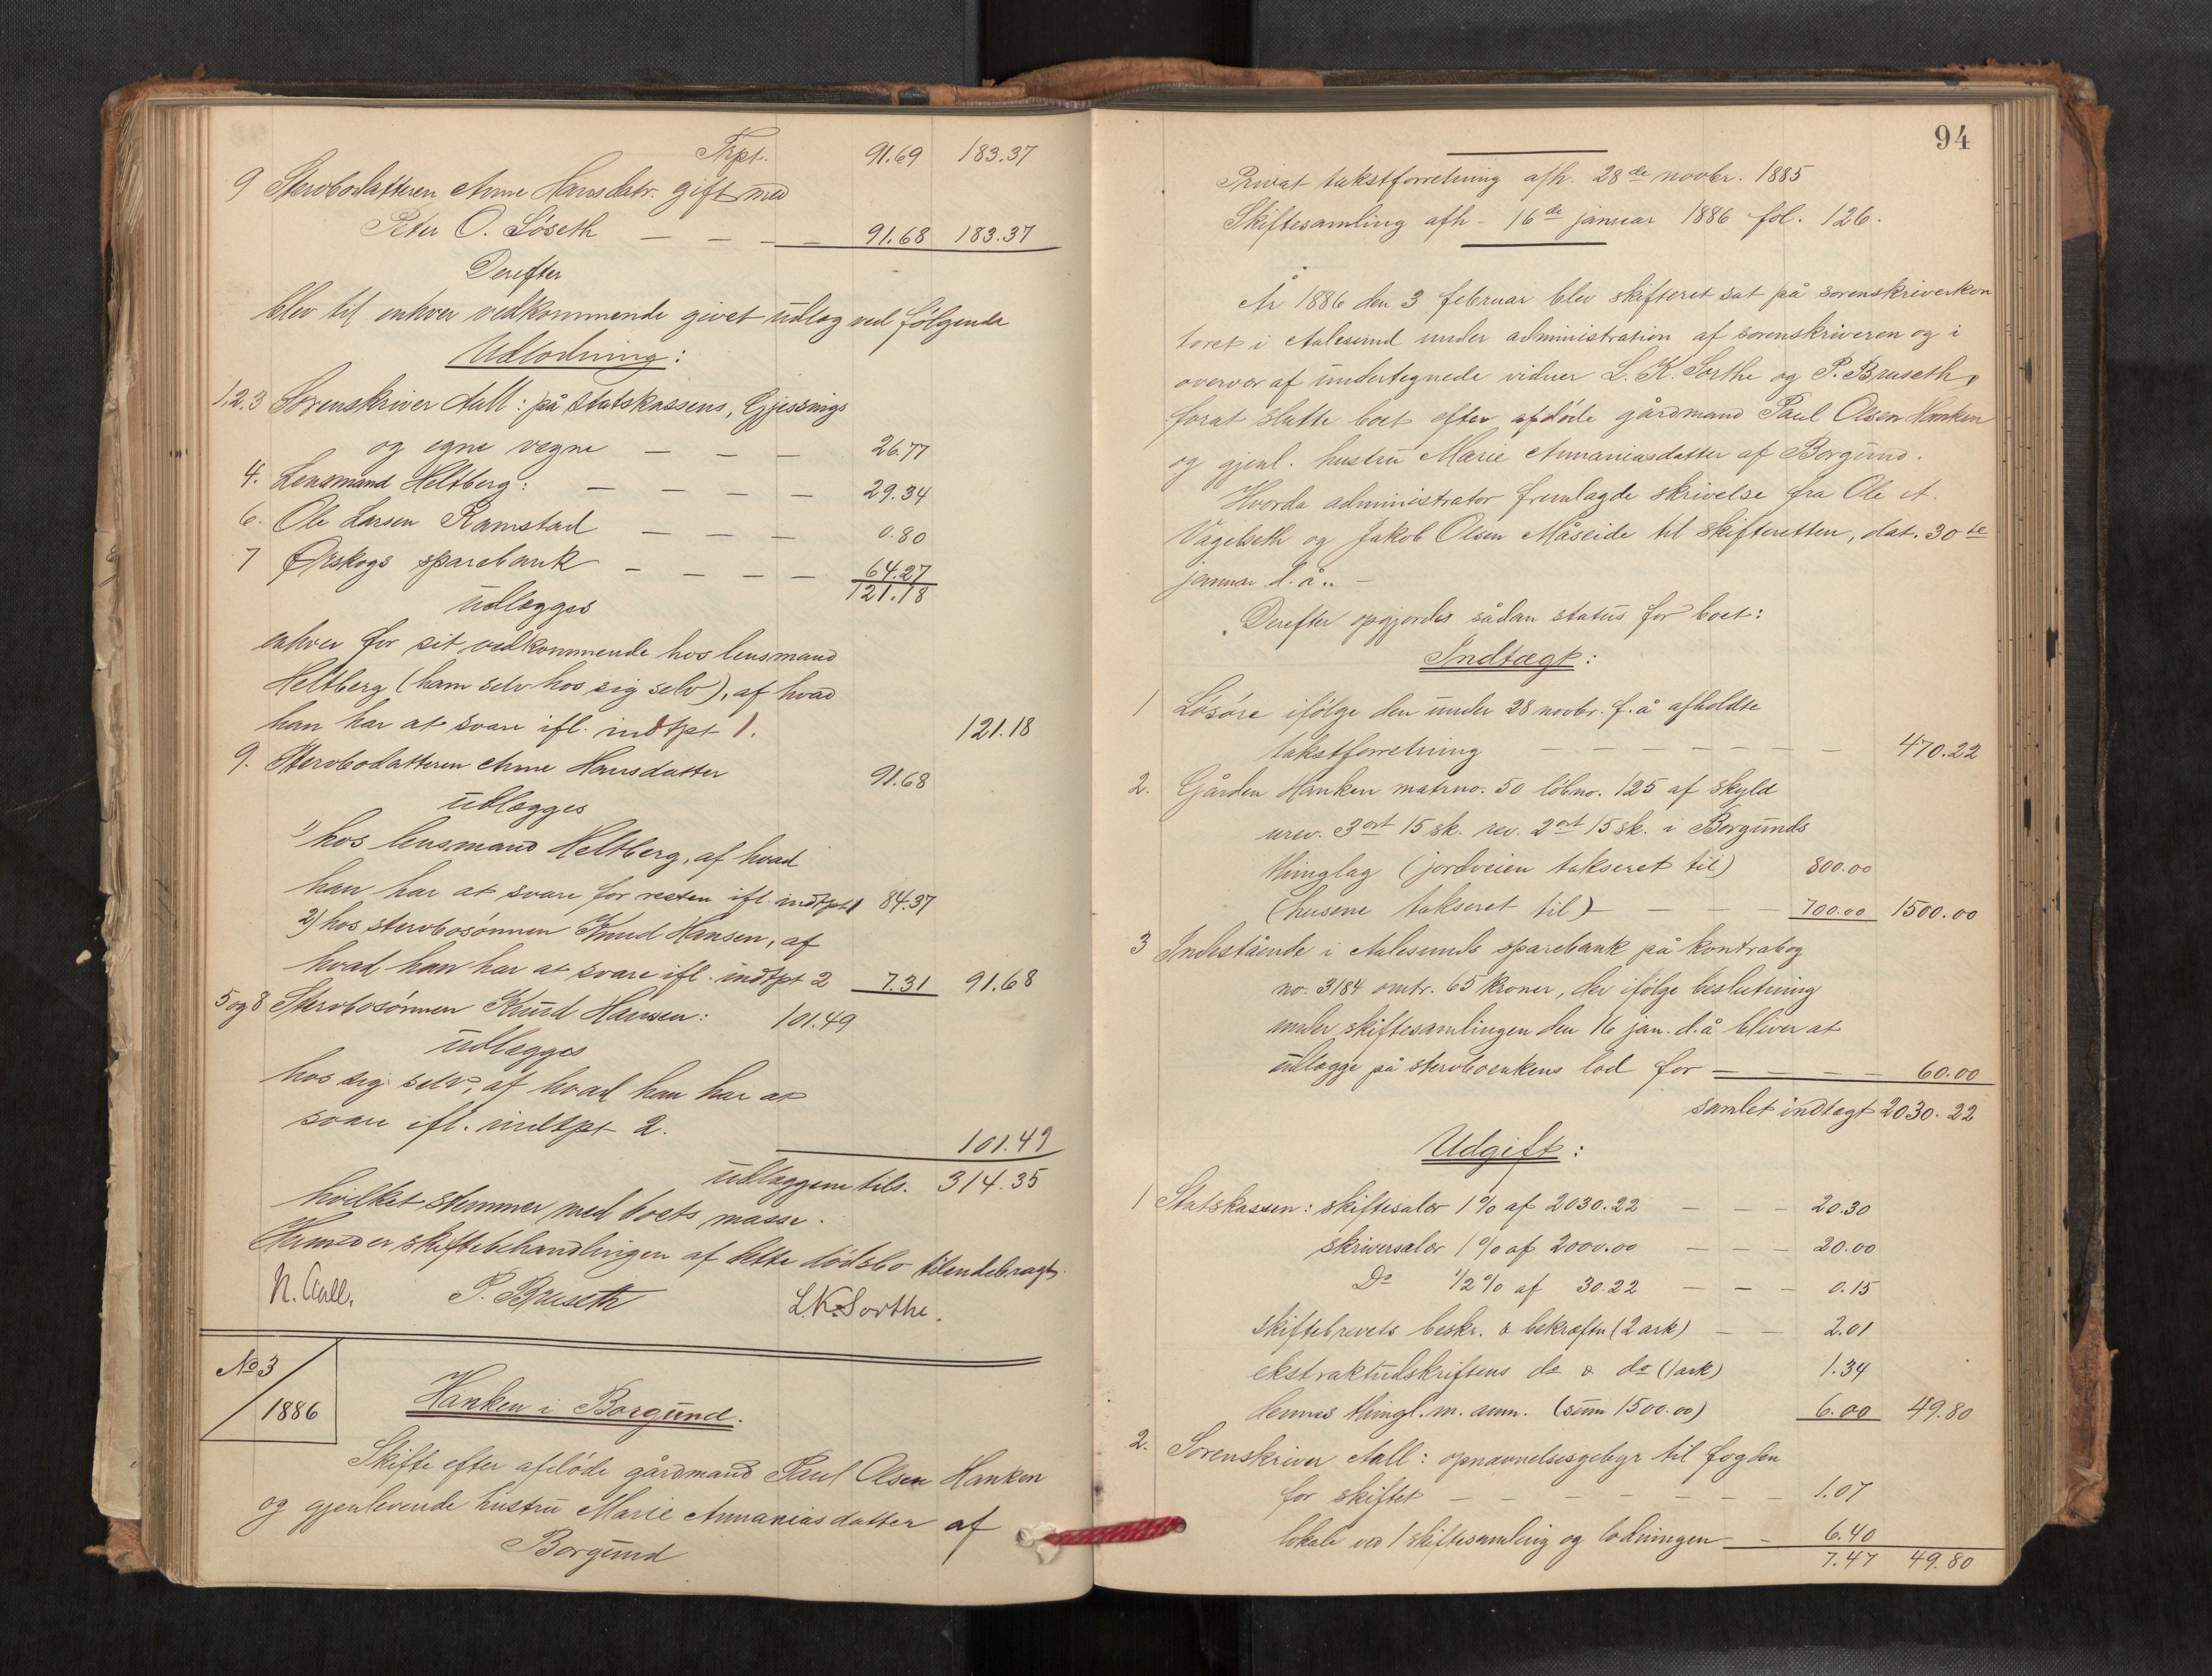 Trpt. 91.69 183.37
9 Stervbodatteren Anne Hansdatr. gift med
Peter O. Løseth — — — — 91.68 183.37
Derefter
blev til enhver vedkommende givet udlæg ved følgende
Udlodning:
1.2.3 Sorenskriver Aall: på statskassens, Gjessings
og egne vegne — — — 26.77
4. Lensmand Heltberg: — — — — 29.34
6. Ole Larsen Ramstad — — — 0.80
7 Ørskogs sparebank — — — — 64.27
121.18
udlægges
enhver for sit vedkommende hos lensmand
Heltberg (ham selv hos sig selv), af hvad
han har at svare ifl. indtpt 1. 121.18
9. Stervbodatteren Anne Hansdatter 91.68
udlægges
1) hos lensmand Heltberg, af hvad
han har at svare for resten ifl. indtpt 1 84.37
2) hos stervbosønnen Knud Hansen, af
hvad han har at svare ifl. indtpt 2 7.31 91.68
5 og 8 Stervbosønnen Knud Hansen: 101.49
udlægges
hos sig selv, af hvad han har at
svare ifl. indtpt 2. 101.49
udlæggene tils. 314.35
hvilket stemmer med boets masse.
Hermed er skiftebehandlingen af dette dødsbo tilendebragt.
N. Aall. P. Bruseth L.K. Sorthe.
No 3
1886
Hanken i Borgund.
Skifte efter afdøde gårdmand Paul Olsen Hanken
og gjenlevende hustru Marie Annaniasdatter af
Borgund
94
Privat takstforretning afh. 28de novbr. 1885
Skiftesamling afh - 16de januar 1886 fol. 126.
År 1886 den 3 februar blev skifteret sat på sorenskriverkon
toret i Aalesund under administration af sorenskriveren og i
overvær af undertegnede vidner L. K. Sorthe og P. Bruseth,
forat slutte boet efter afdøde gårdmand Paul Olsen Hanken
og gjenl. hustru Marie Annaniasdatter af Borgund.
Hvorda administrator fremlagde skrivelse fra Ole A.
Vågelseth og Jakob Olsen Måseide til skifteretten, dat. 30te
januar d.å.. —
Derefter opgjordes sådan status for boet:
Indtægt:
1 Løsøre ifølge den under 28 novbr. f.å afholdte
takstforretning — — — — — — — 470.22
2. Gården Hanken matrno. 50 løbno. 125 af skyld
urev. 3ort 15 sk. rev. 2ort 15 sk. i Borgunds
thinglag (jordveien takseret til) 800.00
(husene takseret til) — — — 700.00 1500.00
3 Indestående i Aalesunds sparebank på kontrabog
no. 3184 omtr. 65 kroner, der ifølge beslutning
under skiftesamlingen den 16 jan. d.å bliver at
udlægge på stervboenkens lod for — — — — 60.00
samlet indtægt 2030.22
Udgift:
1 Statskassen: skiftesalær 1% af 2030.22 — — — 20.30
skriversalær 1% af 2000.00 — — — 20.00
Do ½% af 30.22 — — — 0.15
skiftebrevets beskr. & bekræftn (2 ark) — — 2.01
ekstraktudskriftens do & do (1 ark) 1.34
dennes thingl. m. anm. (sum 1500.00) 6.00 49.80
2. Sorenskriver Aall: opnævnelsesgebyr til fogden
for skiftet — — — — — — — 1.07
lokale ved 1 skiftesamling og lodningen — — 6.40
7.47 49.80